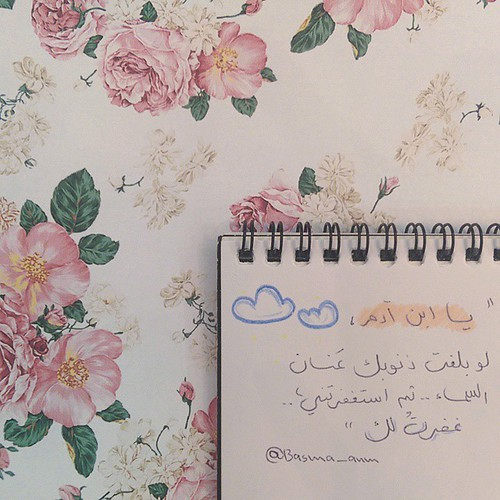 " يا ابن آدم ،
لو بلغت ذنوبك عَنان
السماء .. ثم استغفرتني ، ..
غفرتُ لك "
@Basma_amm